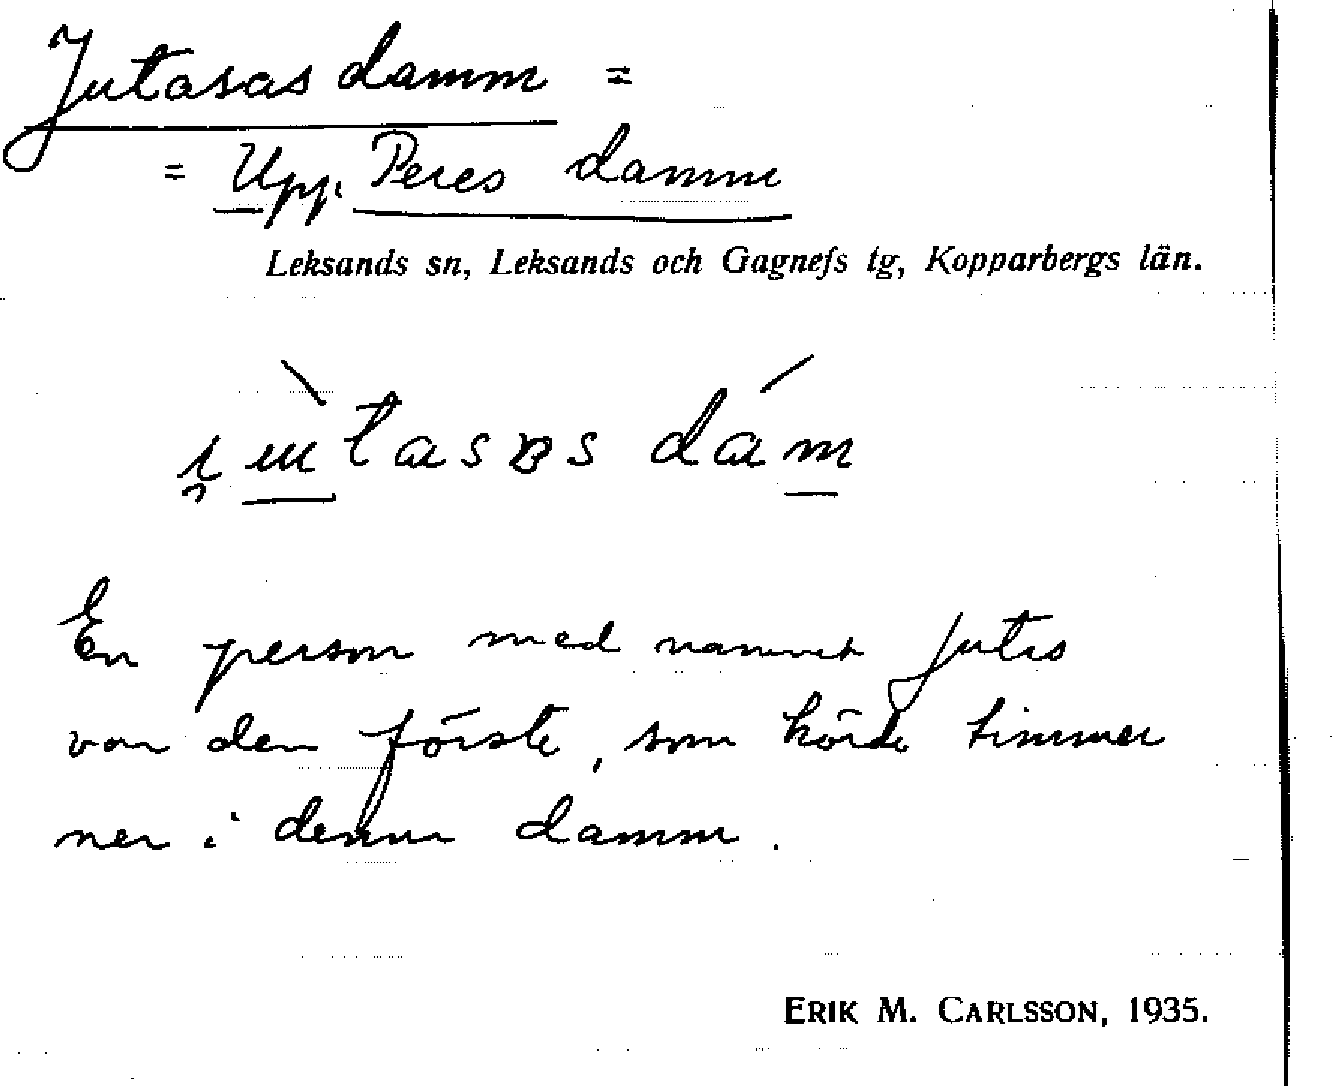 Jutasas damm =
= Upp. Peres damm
Leksands sn, Leksands och Gagnefs tg, Kopparbergs län.
dam
En person med namnet Jutas
var den förste, som körde timmer
ner i denna damm.
ERIK M. CARLSSON, 1935.